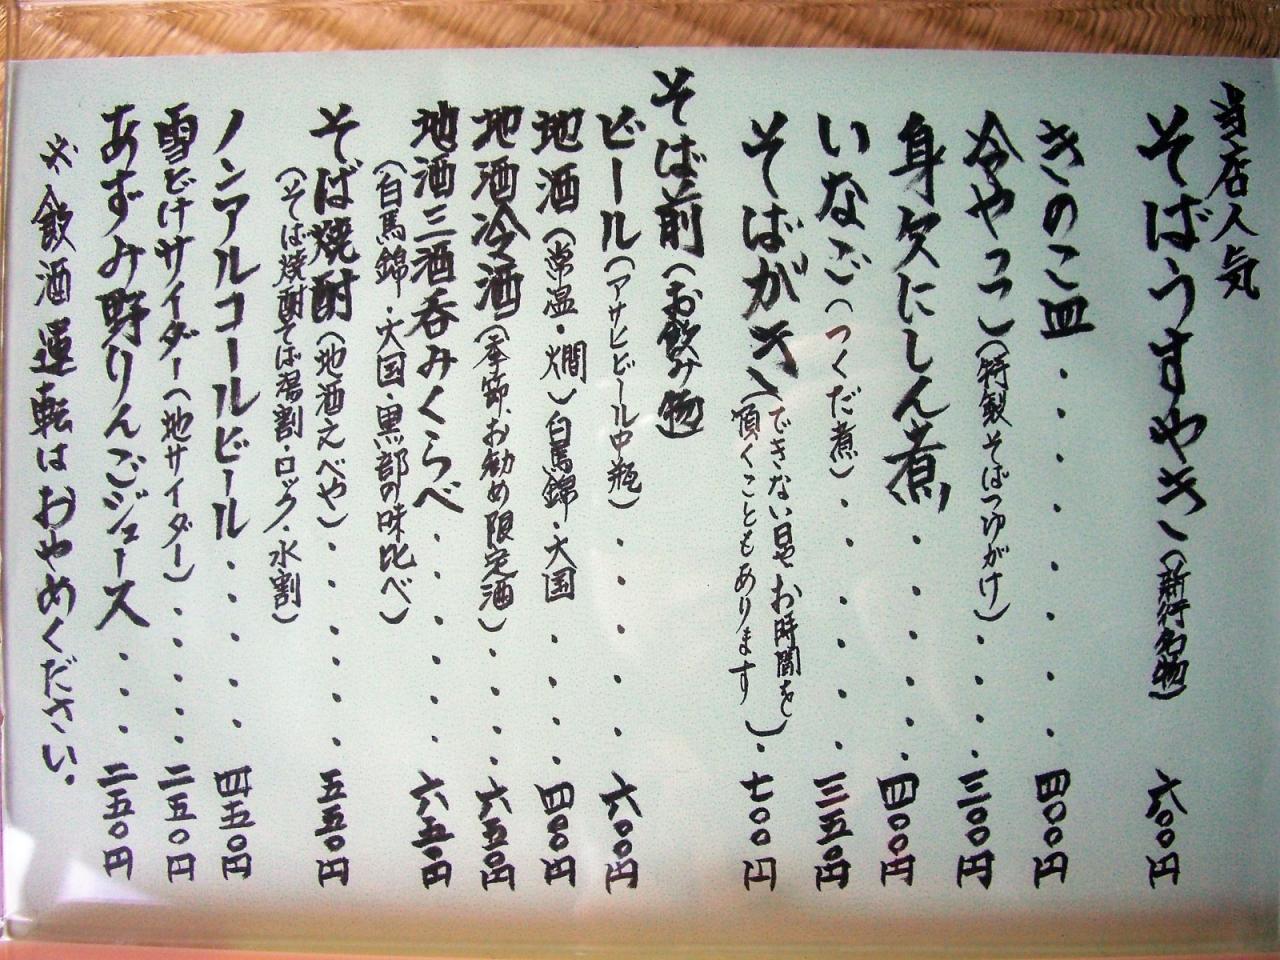 当店人気
そばうすやき(新行名物)六〇〇円
きのこ皿・・・・・・四〇〇円
冷やっこ(特製そばつゆがけ)・・・・三〇〇円
身欠にしん煮・・・・・・四〇〇円
いなご(つくだ煮)・・・・・・三五〇円
そばがき(できない日やお時間を
頂くこともあります)・七〇〇円
そば前(お飲み物)
ビール(アサヒビール中瓶)・・・・六〇〇円
地酒(常温・燗)白馬錦・大国・・・・四〇〇円
地酒冷酒(季節、お勧め限定酒)・・・・六五〇円
地酒三酒呑みくらべ・・・・・・六五〇円
(白馬錦・大国・黒部の味比べ)
そば焼酎(地酒えべや)・・・・・・五五〇円
(そば焼酎そば湯割・ロック・水割)
ノンアルコールビール・・・・・四五〇円
雪どけサイダー(地サイダー)・・・・・二五〇円
あずみ野りんごジュース・・・二五〇円
※飲酒運転はおやめください。